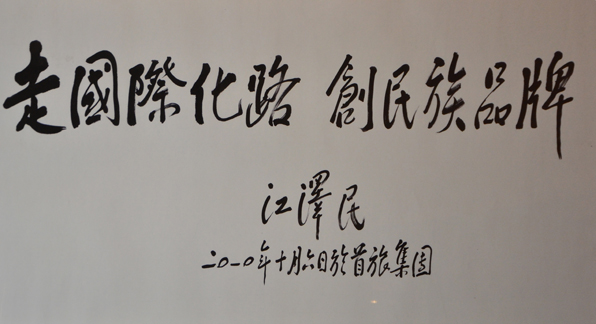 走國際化路 創民族品牌
江澤民
二〇一〇年十月六日於首旅集团